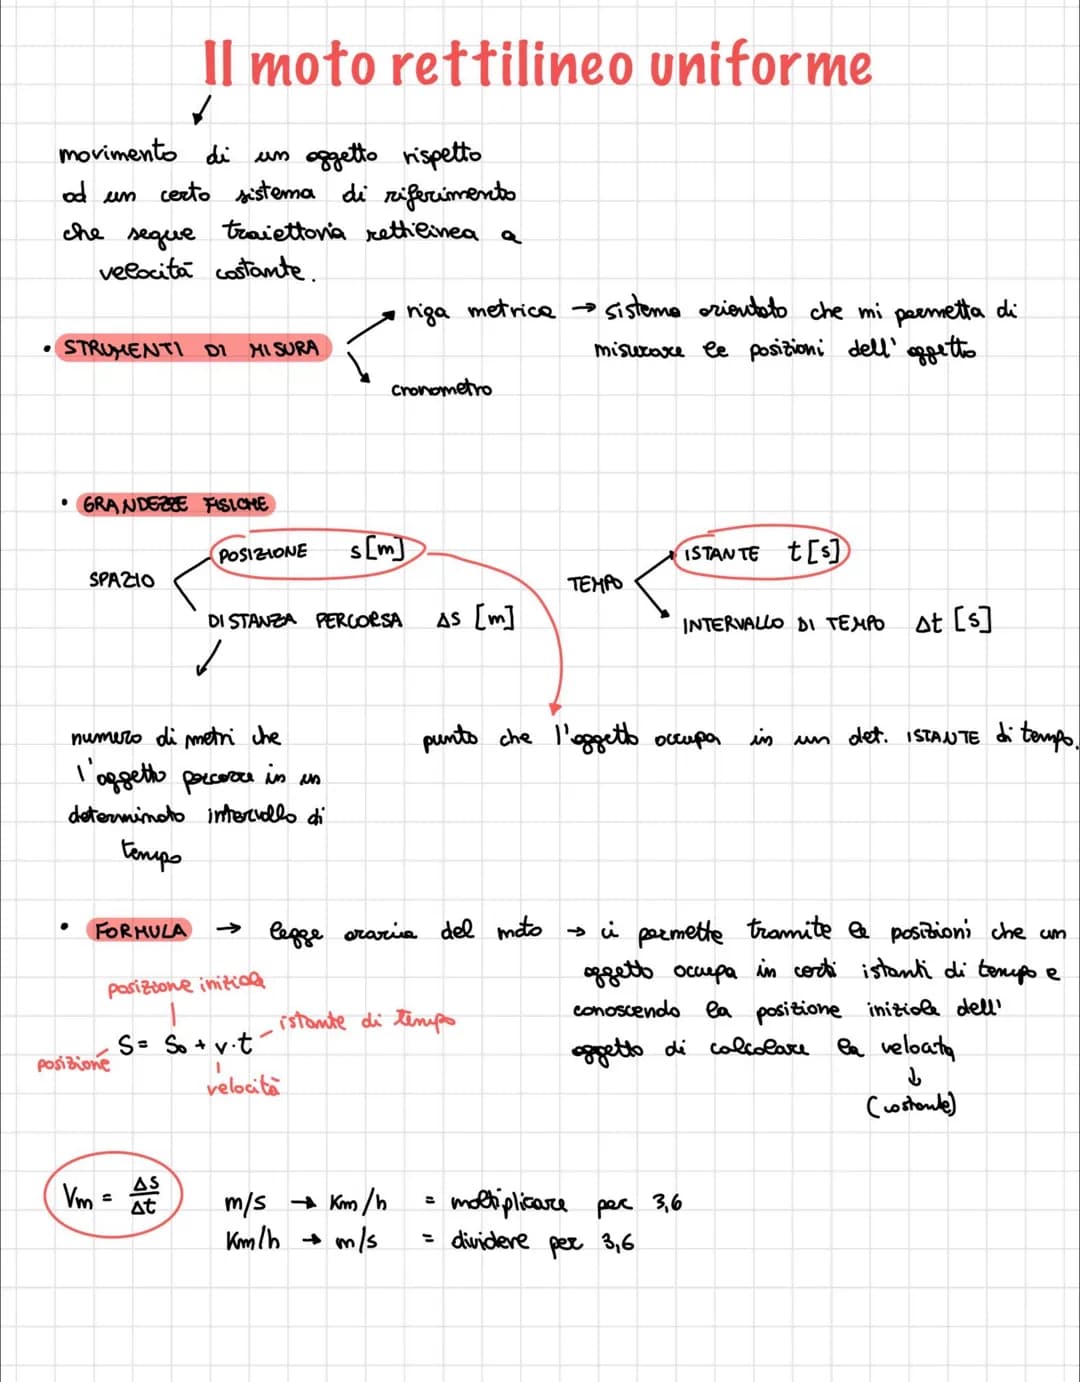 Il moto rettilineo uniforme
movimento di un oggetto rispetto
ad un certo sistema di riferimento
che segue traiettoria rettilinea a
velocità costante.
• STRUMENTI DI MISURA
riga metrica → sistema orientato che mi permetta di
misurare le posizioni dell'oggetto
cronometro
• GRANDEZZE FISICHE
SPAZIO
POSIZIONE s[m]
DISTANZA PERCORSA Δs [m]
TEMPO
ISTANTE t[s]
INTERVALLO DI TEMPO Δt [s]
numero di metri che
l'oggetto percorre in un
determinato intervallo di
tempo
punto che l'oggetto occupa in un det. ISTANTE di tempo.
• FORMULA → legge oraria del moto → ci permette tramite le posizioni che un
oggetto occupa in certi istanti di tempo e
conoscendo la posizione iniziale dell'
oggetto di calcolare la velocità
↓
(costante)
posizione iniziale
istante di tempo
S = S₀ + v·t
posizione
velocità
Vm = ΔS/Δt
m/s → Km/h = moltiplicare per 3,6
Km/h → m/s = dividere per 3,6